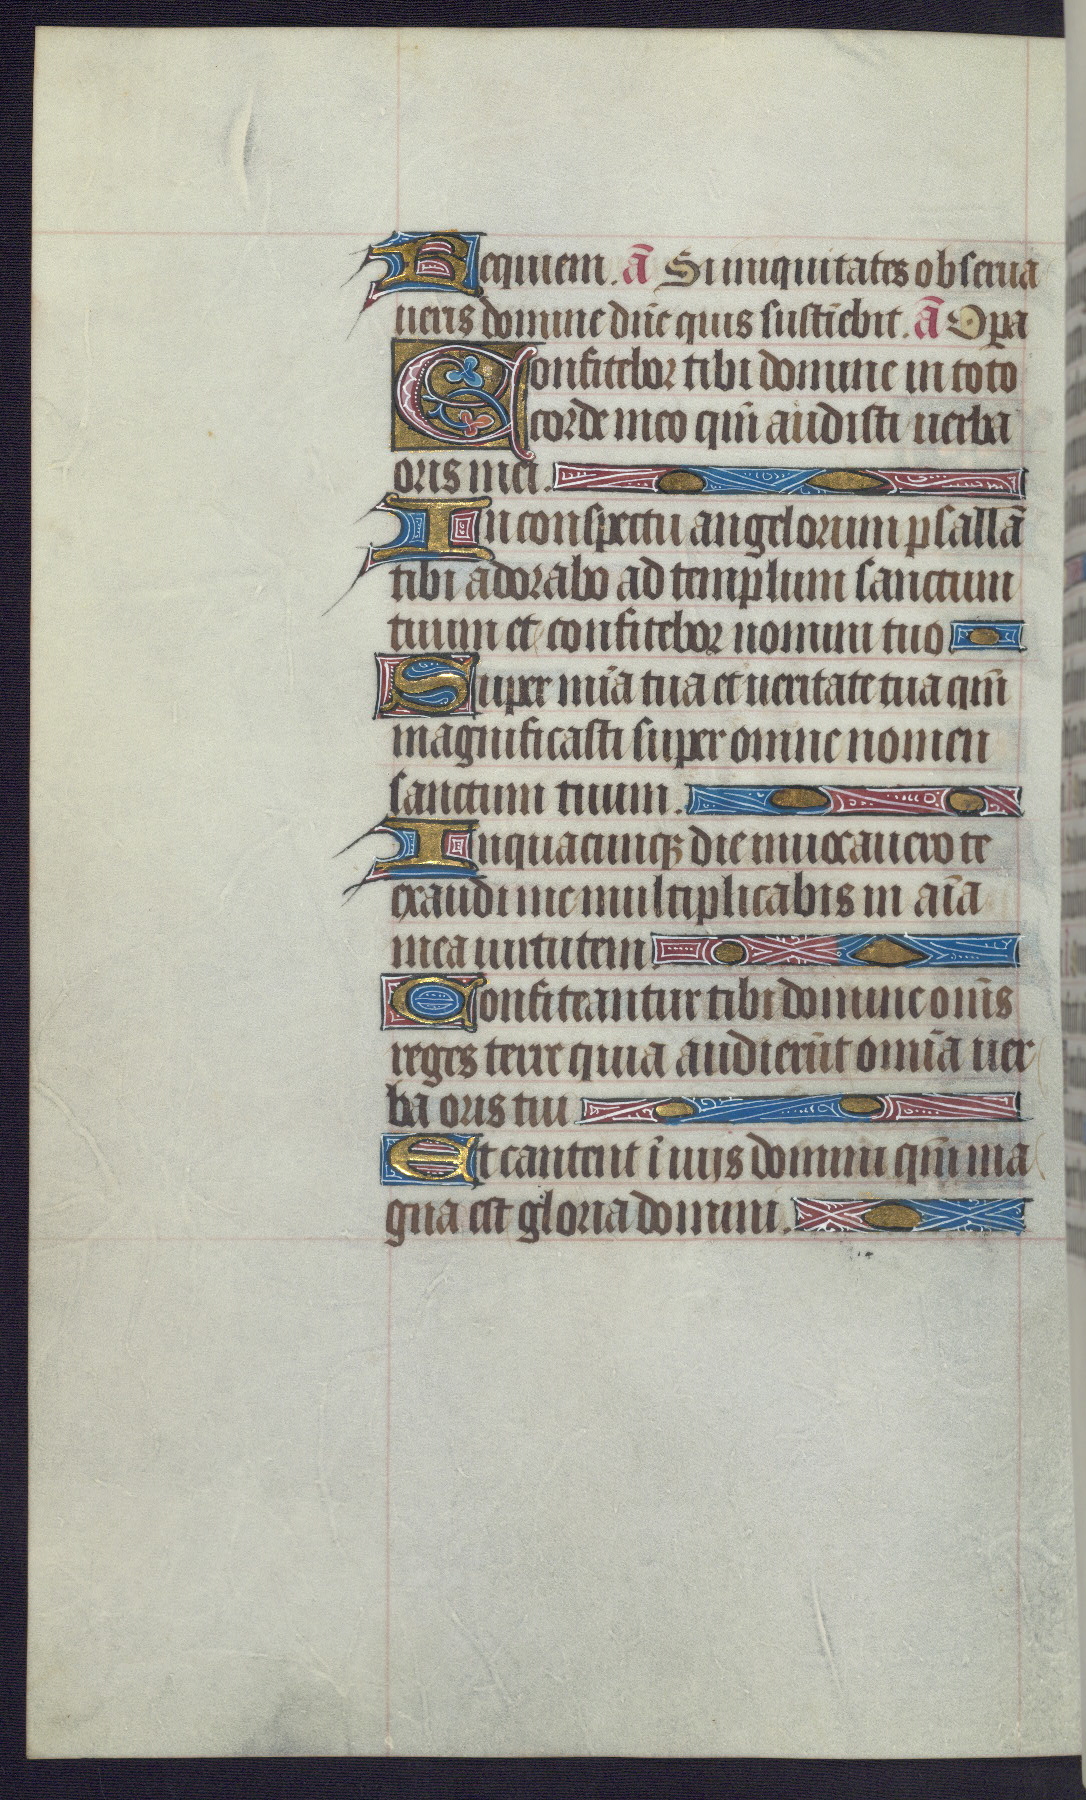 Requiem. ā Si iniquitates obserua
ueris domine dn̄e quis sustīebit. ā Opa
Confitebor tibi domine in toto
corde meo qm̄ audisti uerba
oris mei.
In conspectu angelorum psallā
tibi adorabo ad templum sanctum
tuum et confitebor nomini tuo
Super mīa tua et ueritate tua qm̄
magnificasti super omne nomen
sanctum tuum.
Inquacunqꝫ die inuocauero te
exaudi me multiplicabis in aīa
mea uirtutem
Confiteantur tibi domine om̄s
reges terre quia audierūt omīa uer
ba oris tui
Et cantent ī uijs domini qm̄ ma
gna est gloria domini.